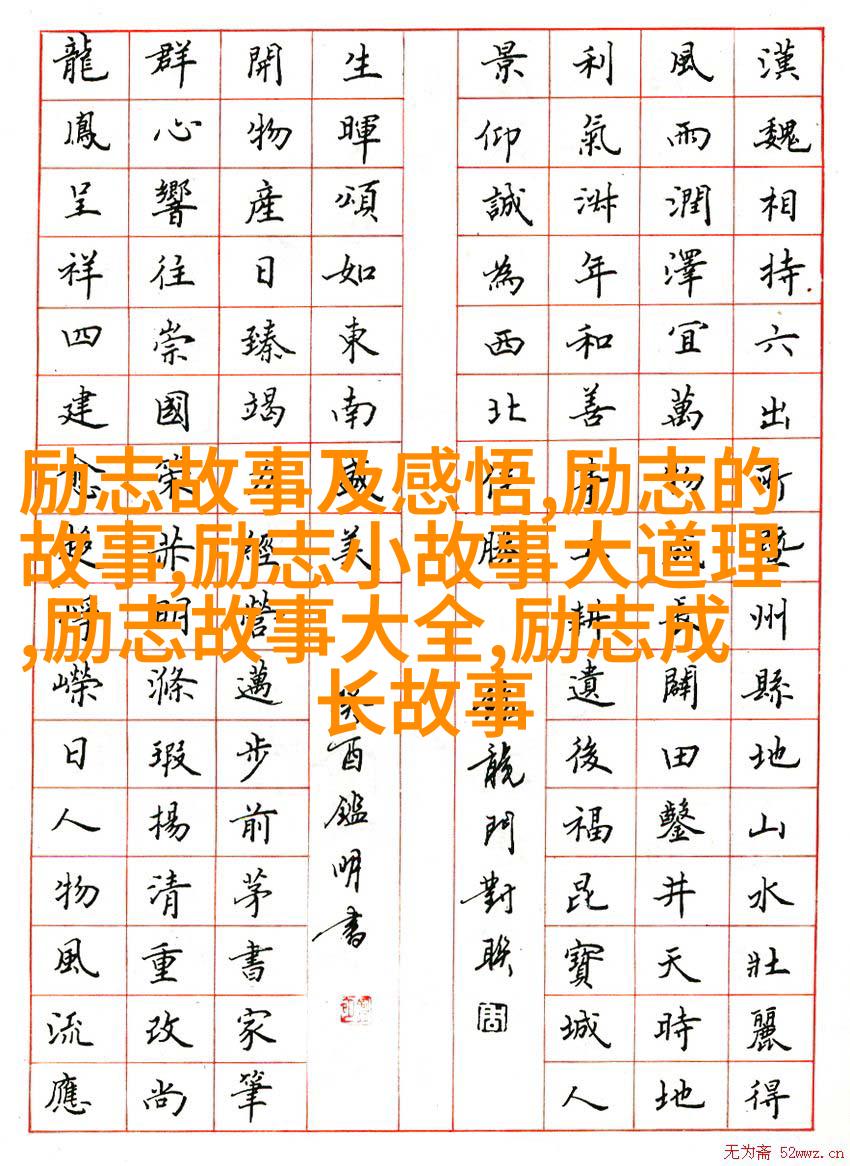 漢魏相持六出所暨州縣地山水壯麗得
風雨潤澤宜萬物長闢田鑿井天時地
利氣年和善耕遺後福昆寶城人
景仰誠為西北勝
龍門對聯
生暉頌如東南盛美
癸酉鑑明書
開物產日臻竭經營邁步前茅書家筆
群心響往崇國策明滌瑕揚清重改尚
龍鳳呈祥四建愈崢嶸日人物風流應
励志故事及感悟,励志的
故事,励志小故事大道理
,励志故事大全,励志成
长故事
无为斋 52wwz.cn